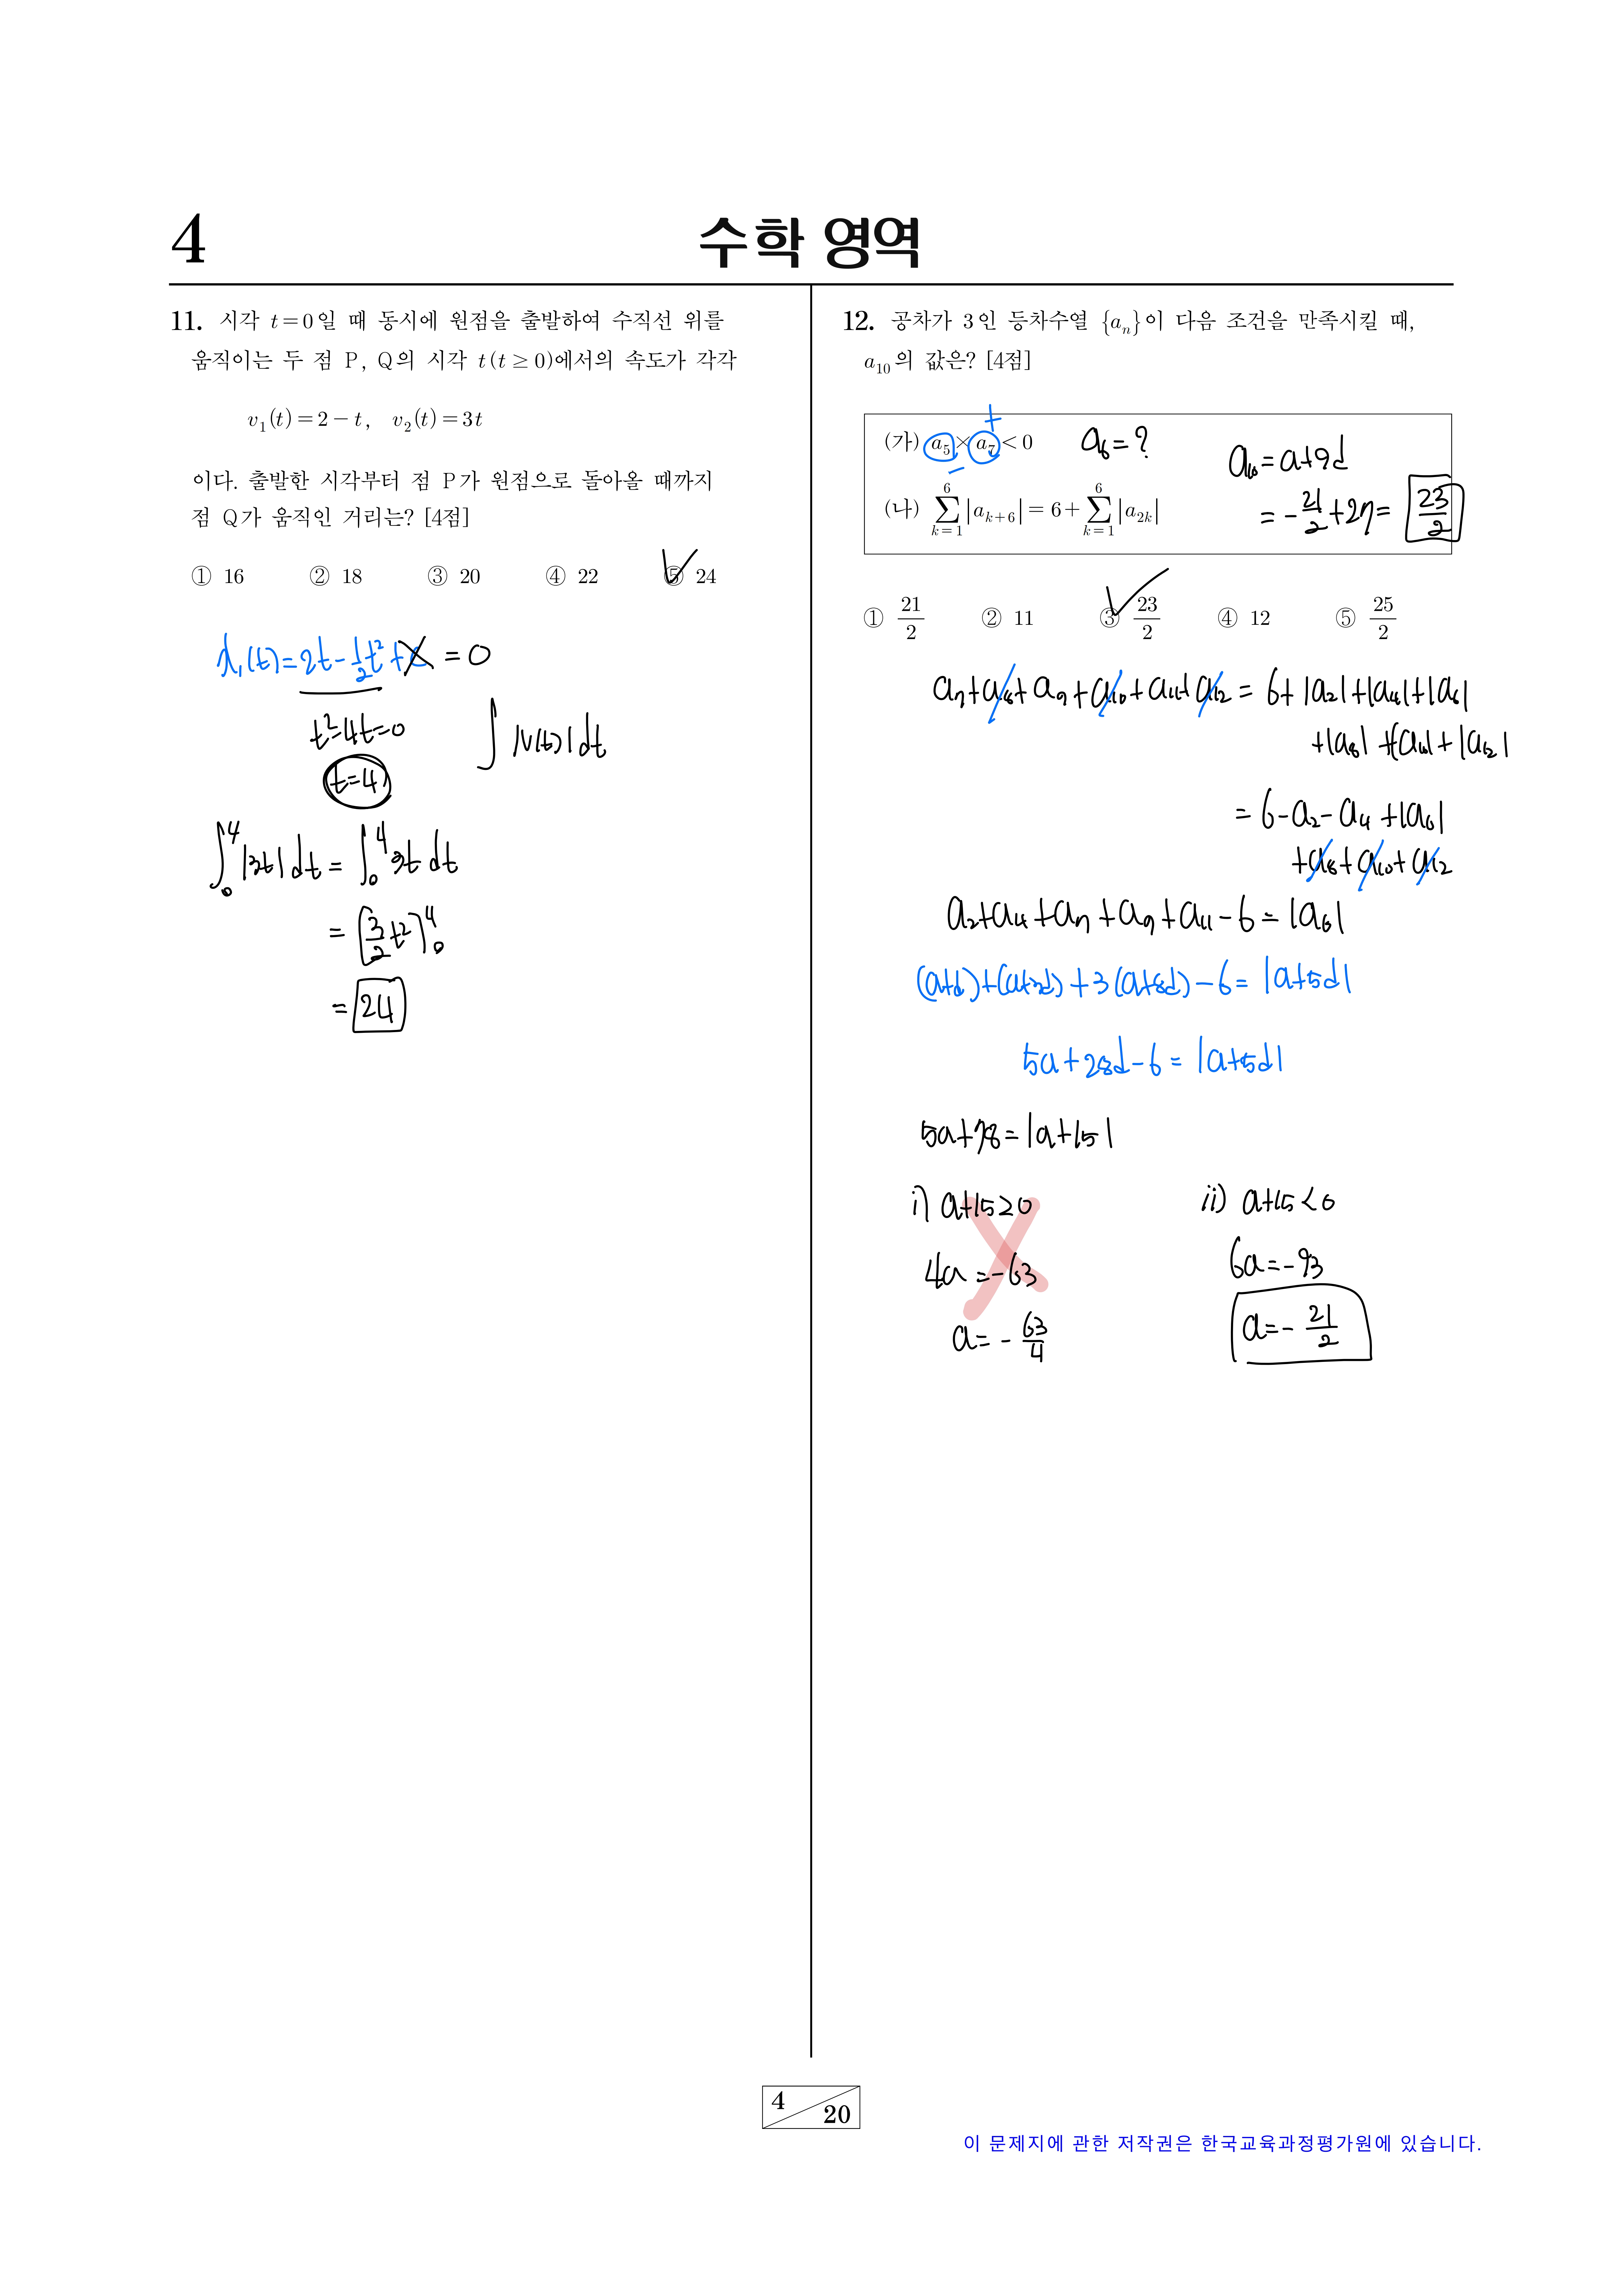 4
수학 영역
11. 시각 t=0일 때 동시에 원점을 출발하여 수직선 위를
움직이는 두 점 P, Q의 시각 t(t≥0)에서의 속도가 각각
v₁(t)=2−t, v₂(t)=3t
이다. 출발한 시각부터 점 P가 원점으로 돌아올 때까지
점 Q가 움직인 거리는? [4점]
① 16 ② 18 ③ 20 ④ 22 ⑤ 24
x₁(t)=2t−1/2t²+C =0
t²−4t=0
t=4
∫|v(t)|dt
∫₀⁴|3t|dt = ∫₀⁴3t dt
= [3/2 t²]₀⁴
= 24
12. 공차가 3인 등차수열 {aₙ}이 다음 조건을 만족시킬 때,
a₁₀의 값은? [4점]
(가) a₅×a₇<0
+
−
a₆=?
(나) ∑_{k=1}^{6}|a_{k+6}|=6+∑_{k=1}^{6}|a_{2k}|
a₁₀=a+9d
=−21/2+27= 23/2
① 21/2 ② 11 ③ 23/2 ④ 12 ⑤ 25/2
a₇+a₈+a₉+a₁₀+a₁₁+a₁₂ = 6+|a₂|+|a₄|+|a₆|
+|a₈|+|a₁₀|+|a₁₂|
= 6−a₂−a₄+|a₆|
+a₈+a₁₀+a₁₂
a₂+a₄+a₇+a₉+a₁₁−6=|a₆|
(a+d)+(a+3d)+3(a+8d)−6=|a+5d|
5a+28d−6=|a+5d|
5a+78=|a+15|
i) a+15≥0
4a=−63
a=−63/4
ii) a+15<0
6a=−93
a=−21/2
4
20
이 문제지에 관한 저작권은 한국교육과정평가원에 있습니다.